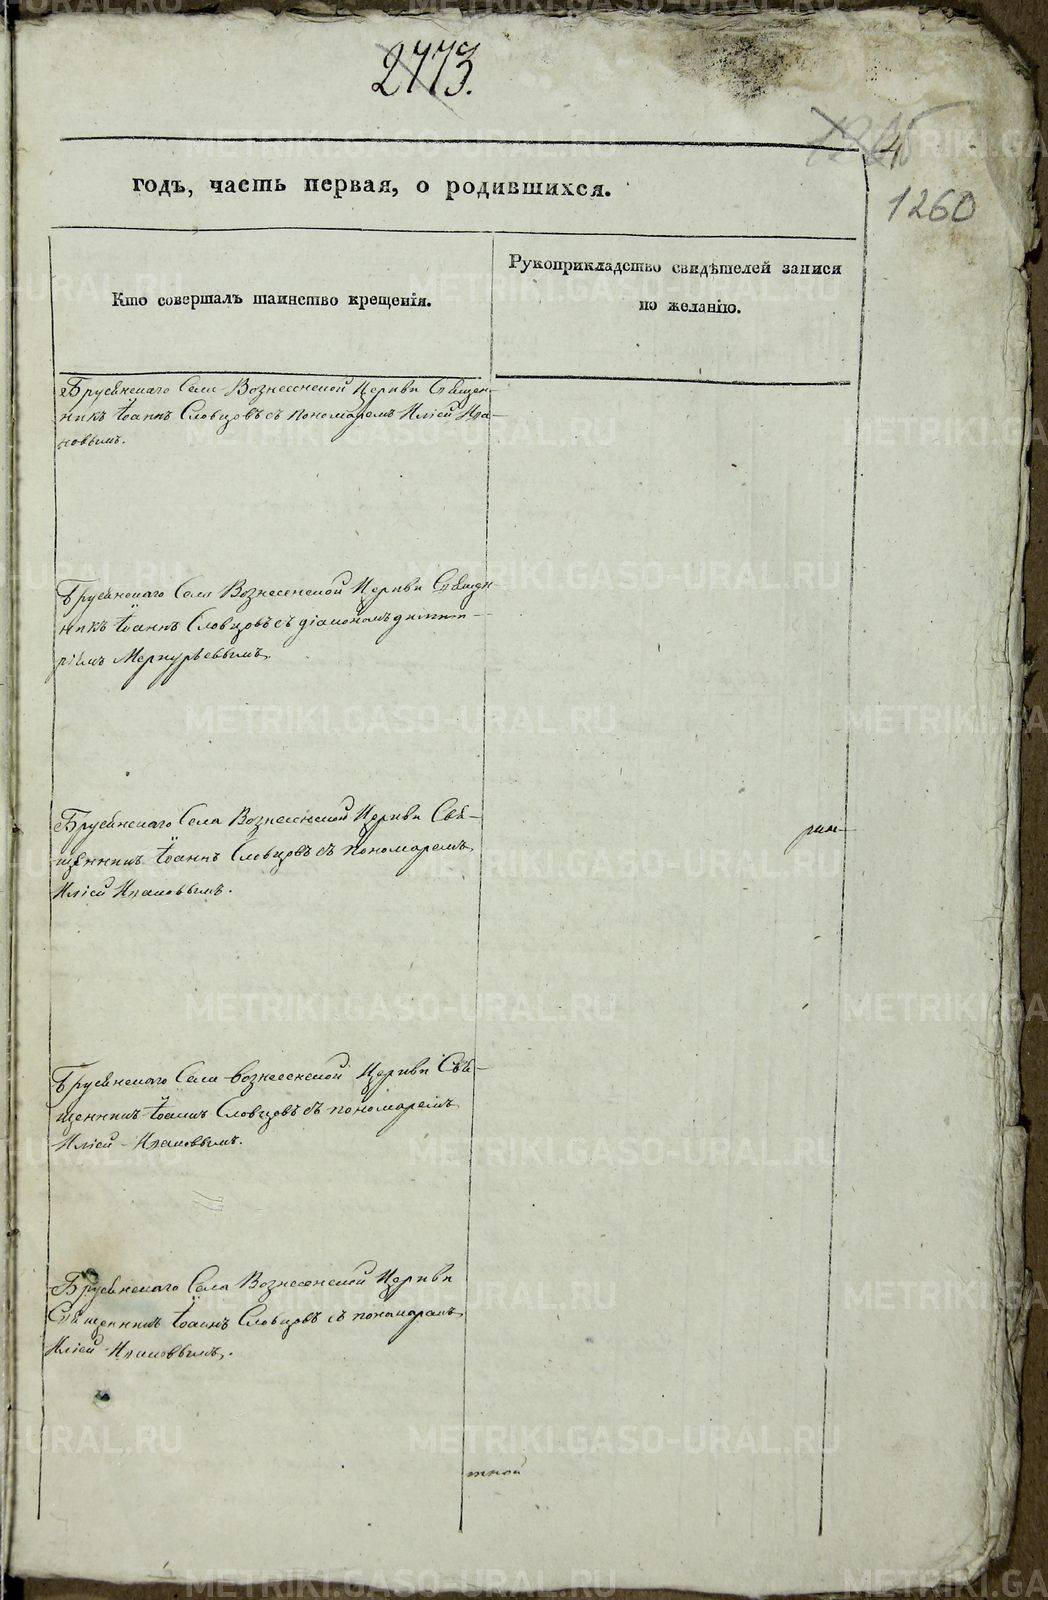 2773.
1260
годъ, часть первая, о родившихся.
Кто совершалъ таинство крещенія.
Рукоприкладство свидѣтелей записи
по желанію.
Брусянскаго Села Вознесенской Церкви Священ-
никъ Іоаннъ Словцовъ съ пономаремъ Иліей Ипа-
товымъ.
Брусянскаго Села Вознесенской Церкви Священ-
никъ Іоаннъ Словцовъ съ діакономъ Димит-
ріемъ Меркурьевымъ.
Брусянскаго Села Вознесенской Церкви Свя-
щенникъ Іоаннъ Словцовъ съ пономаремъ
Иліей Ипатовымъ.
рин-
Брусянскаго Села Вознесенской Церкви Свя-
щенникъ Іоаннъ Словцовъ съ пономаремъ
Иліей Ипатовымъ.
Брусянскаго Села Вознесенской Церкви
Священникъ Іоаннъ Словцовъ съ пономаремъ
Иліей Ипатовымъ.
тной
METRIKI.GASO-URAL.RU